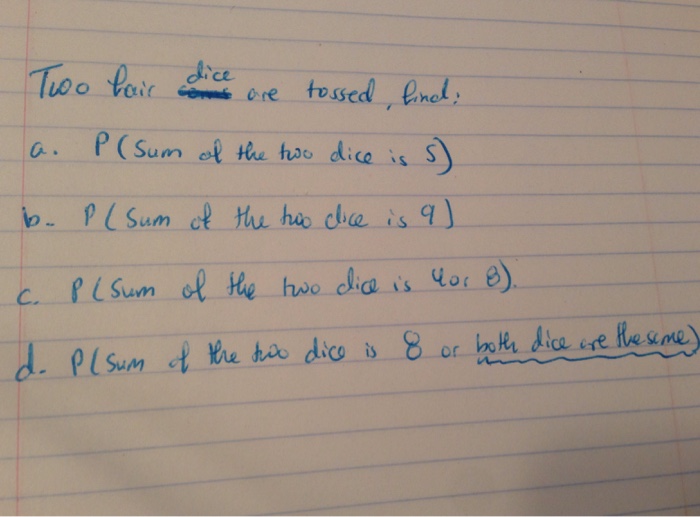 Two fair dice are tossed, find:
a. P(Sum of the two dice is 5)
b. P(Sum of the two dice is 9)
c. P(Sum of the two dice is 4 or 8).
d. P(Sum of the two dice is 8 or both dice are the same)